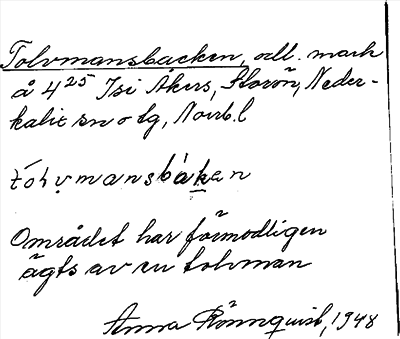 Tolvmansbacken, odl. mark
å 4²⁵ Isi Åkers, Storön, Neder-
kalix sn o tg, Norrb.l
tólvmansbàken
Området har förmodligen
ägts av en tolvman
Anna Rönnquist, 1948